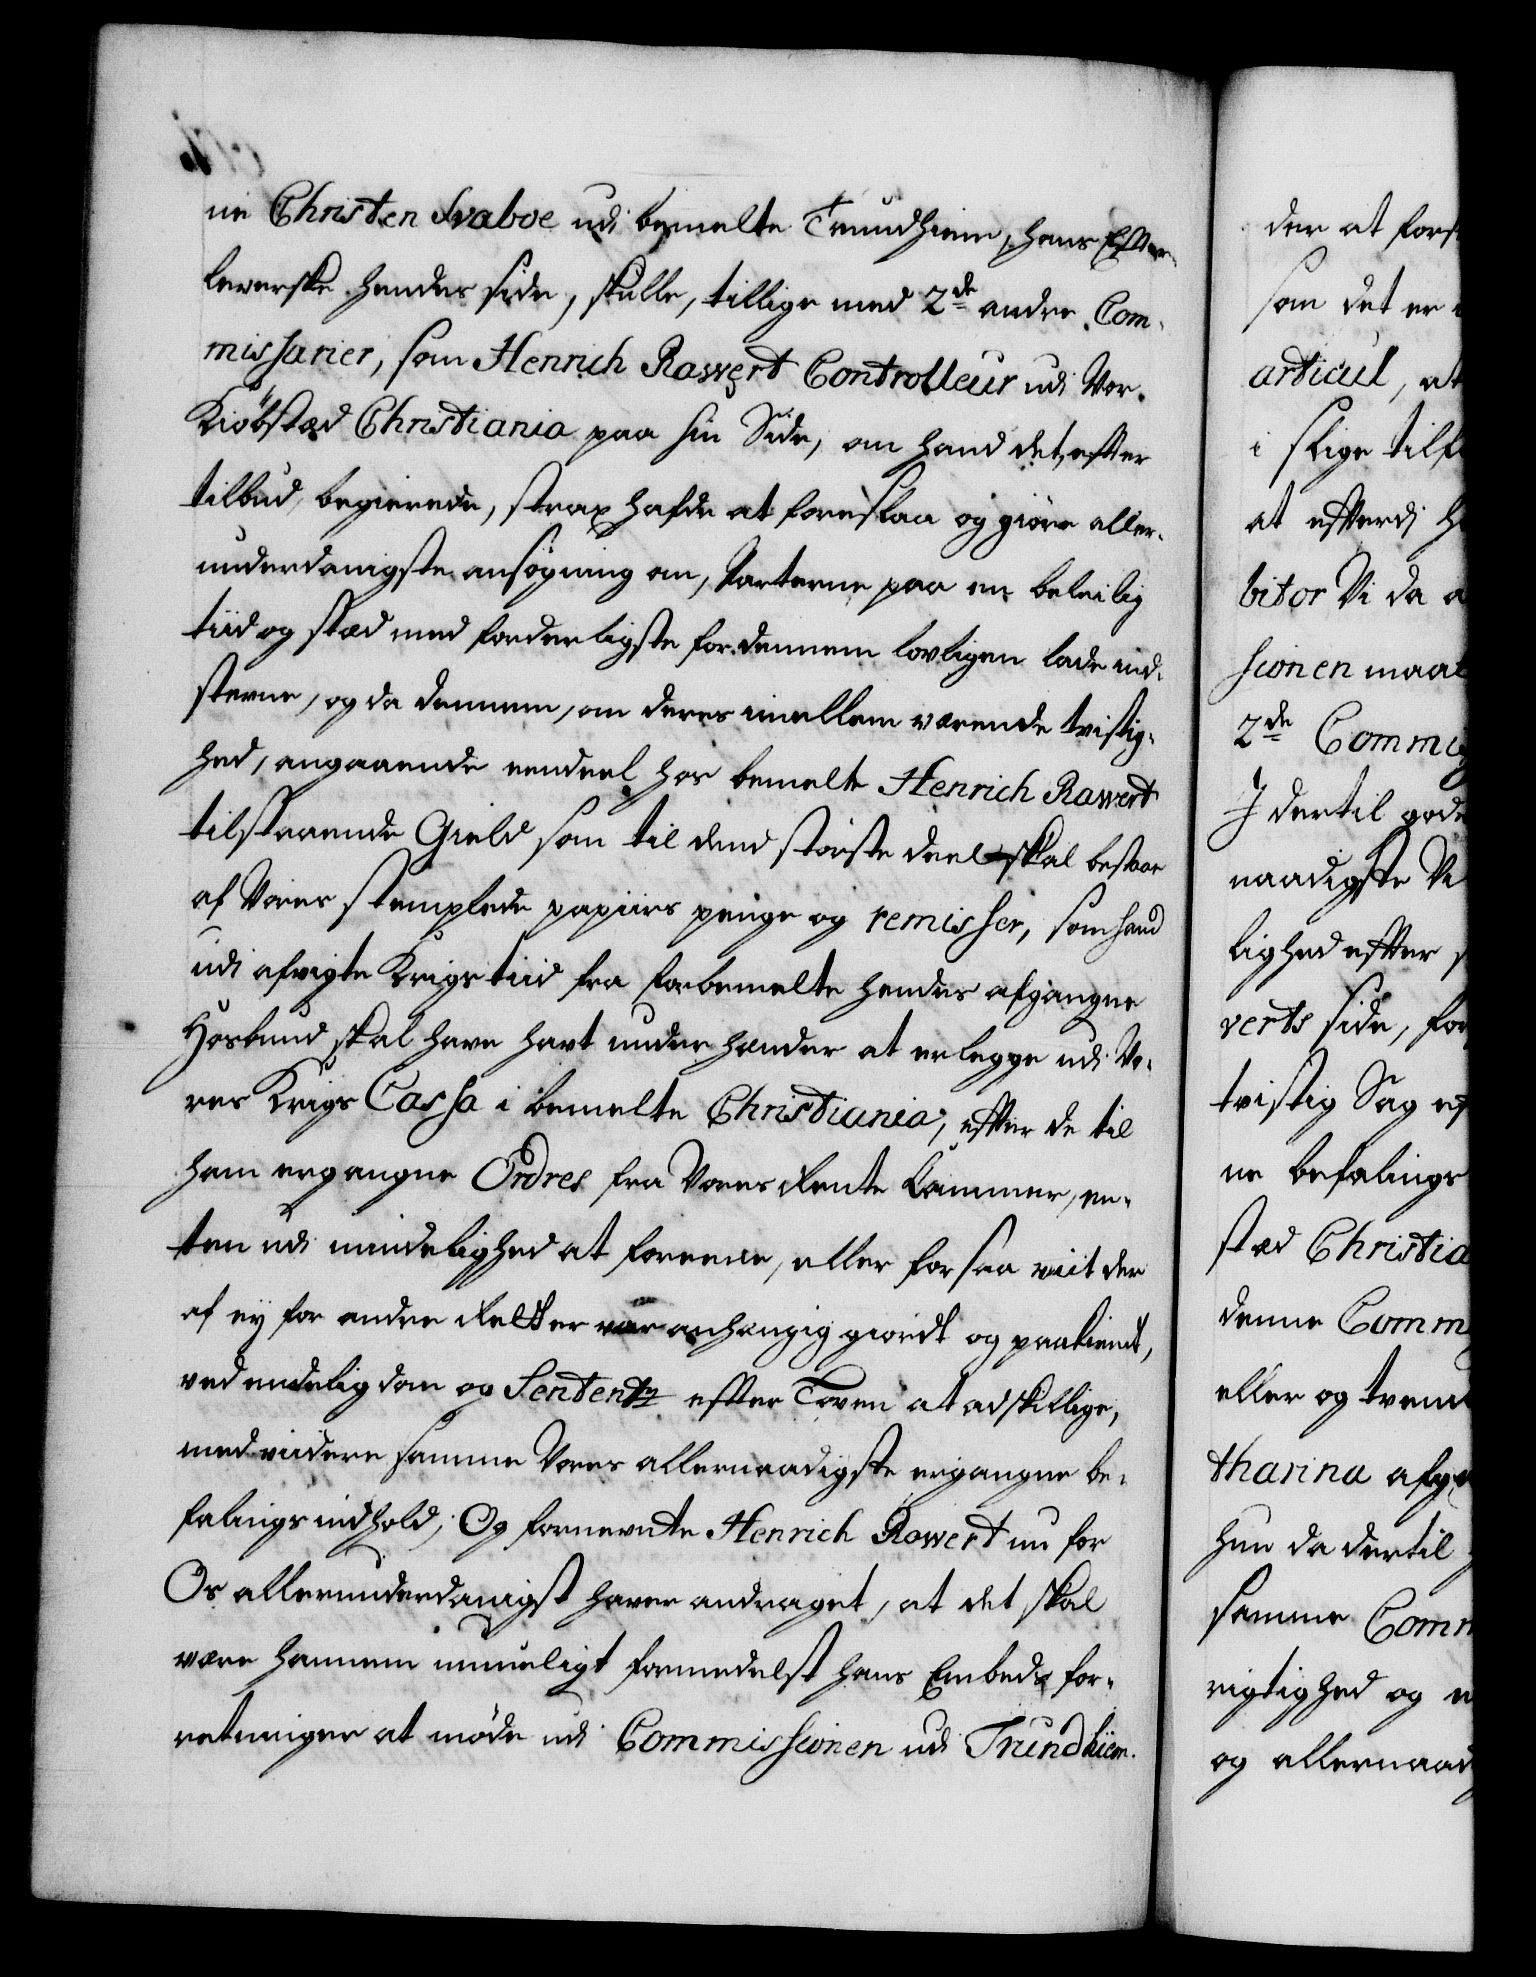 ne Christen Svaboe udi bemelte Trundhiem, hans Efter-
leverske hendes side, skulle, tillige med 2de andre Com-
missarier, som Henrich Rawert Controlleur udi Vor
Kiöbstæd Christiania paa sin Side, om hand det, efter
tilbud, begierede, strax hafde at foreslaa og giöre aller-
underdanigste ansøgning om, Parterne paa en beleilig
tiid og stæd med forderligste for dennem lovligen lade ind-
sterne, og da dennem, om deres imellem værende tvistig-
hed, angaaende eendeel hos bemelte Henrich Rawert
tilstaaende Gield som til dend störste deel skal bestaae
af Vores stemplede papiirs penge og remisser, som hand
udi afvigte Krigs tiid fra forbemelte hendes afgangne
Hosbund skal have havt under hænder at erlegge udi Vo-
res Krigs Cassa i bemelte Christiania, efter de til
ham ergangne Ordres fra Vores Rente Cammer, en-
ten udi mindelighed at foreene, eller forsaa viit der
af ey for andre Retter var anhængig giordt og paakiendt,
ved endelig dom og Sententz efter Loven at adskillige,
med viidere samme Vores allernaadigste ergangne be-
falings indhold; Og fornevnte Henrich Rawert nu for
Os allerunderdanigst haver andraget, at det skal
være hannem umueligt formedelst hans Embeds for-
retninger at möde udi Commissionen udi Trundhiem.
der at fors
som det er
articul, at
i slige tilf
at efterdi
bitor Vi da
sionen maat
2de Commis
I dertil gode
naadigste Vi
lighed efter
verts side, for
tvistig Sag ef
ne befalings
stæd Christia
denne Comm
eller og tvend
tharina afg
hun da dertil
samme Comm
rigtighed og
og allernaad